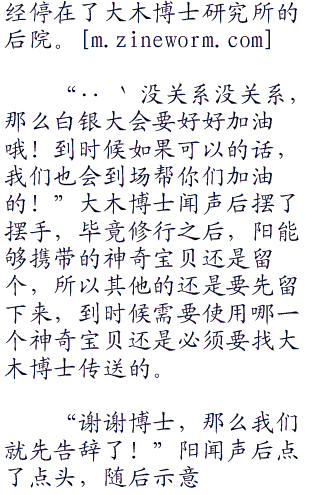 经停在了大木博士研究所的
后院。[m.zineworm.com]
“··、没关系没关系，
那么白银大会要好好加油
哦！到时候如果可以的话，
我们也会到场帮你们加油
的！”大木博士闻声后摆了
摆手，毕竟修行之后，阳能
够携带的神奇宝贝还是留
个，所以其他的还是要先留
下来，到时候需要使用哪一
个神奇宝贝还是必须要找大
木博士传送的。
“谢谢博士，那么我们
就先告辞了！”阳闻声后点
了点头，随后示意